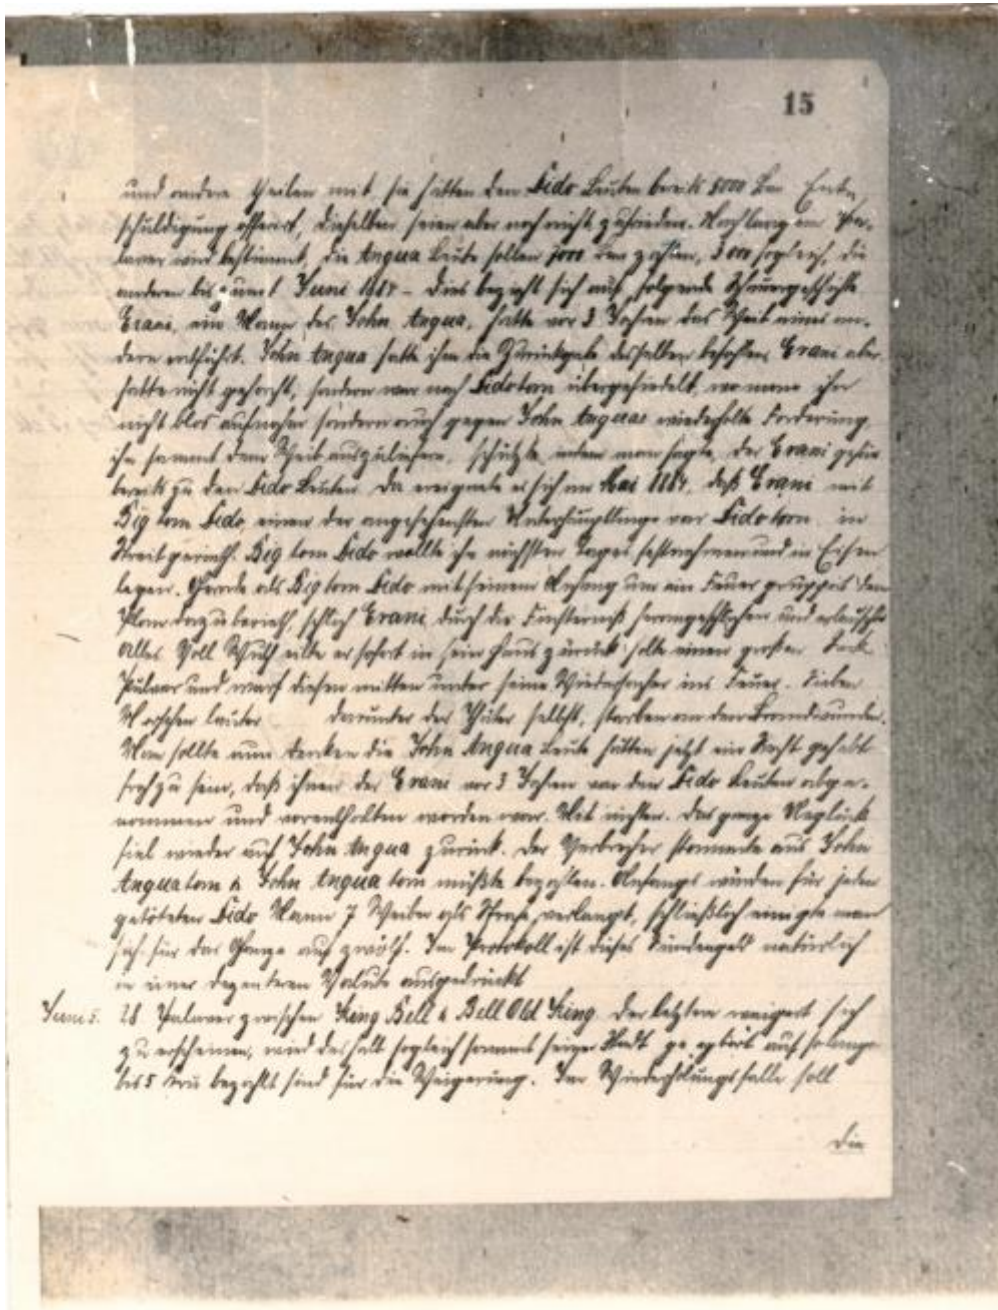 15
und andere theilen mit, sie hätten den Dido Leuten bereits 5000 Entschuldigung offerirt, dieselben seien aber noch nicht zufrieden. Nach langem Pa-
laver wird bestimmt, die Angua Leute sollen 7000 zahlen, 3000 sogleich, die
anderen bis zum 1 Juni 1885 - Dies bezieht sich auf folgende Schauergeschichte
Erani, ein Mann des John Angua, hatte vor 3 Jahren das Weib eines an-
dern entführt. John Angua hatte ihm die Zurückgabe desselben befohlen, Erani aber
hatte nicht gehorcht, sondern war nach Didotown übergesiedelt, wo man ihn
nicht blos aufnahm sondern auch gegen John Anguas wiederholte Forderung,
ihn sammt dem Weib auszuliefern, schützte, indem man sagte, der Erani gehöre
bereits zu den Dido Leuten. Da ereignete es sich im Mai 1884, daß Erani mit
Big tom Dido, einem der angesehensten Unterhäuptlinge von Didotown in
Streit gerieth. Big tom Dido wollte ihn nächsten Tages festnehmen und in Eisen
legen. Gerade als Big tom Dido mit seinem Anhang um ein Feuer gruppirt den
Plan dazu berieth, schlich Erani durch die Finsterniß herangeschlichen und erlauschte
Alles Voll Wuth eilte er sofort in sein Haus zurück holte einen großen Sack
Pulver und warf diesen mitten unter seine Widersacher ins Feuer. Sieben
Menschen darunter der Thäter selbst, starben an den Brandwunden.
Man sollte nun denken die John Angua Leute hätten jetzt ein Recht gehabt
froh zu sein, daß ihnen der Erani vor 3 Jahren von den Dido Leuten abge-
nommen und vorenthalten worden war. Mit nichten. Das ganze Unglück
fiel wieder auf John Angua zurück. Der Verbrecher stammte aus John
Anguatown & John Angua town müßte bezahlen. Anfangs würden für jeden
getöteten Dido Mann 7 Weiber als Strafe verlangt, schließlich einigte man
sich für das Ganze auf zwölf. Im Protokoll ist dieses Sündengeld natürlich
in einer dezenteren Valuta ausgedrückt
Juni 5. 28 Palaver zwischen King Bell & Bell Old King. Der letztere weigert sich
zu erscheinen, wird deshalb sogleich sammt seiner Stadt auf so lange
bis 5 Kru bezahlt sind für die Weigerung. Im Wiederholungsfalle soll
die